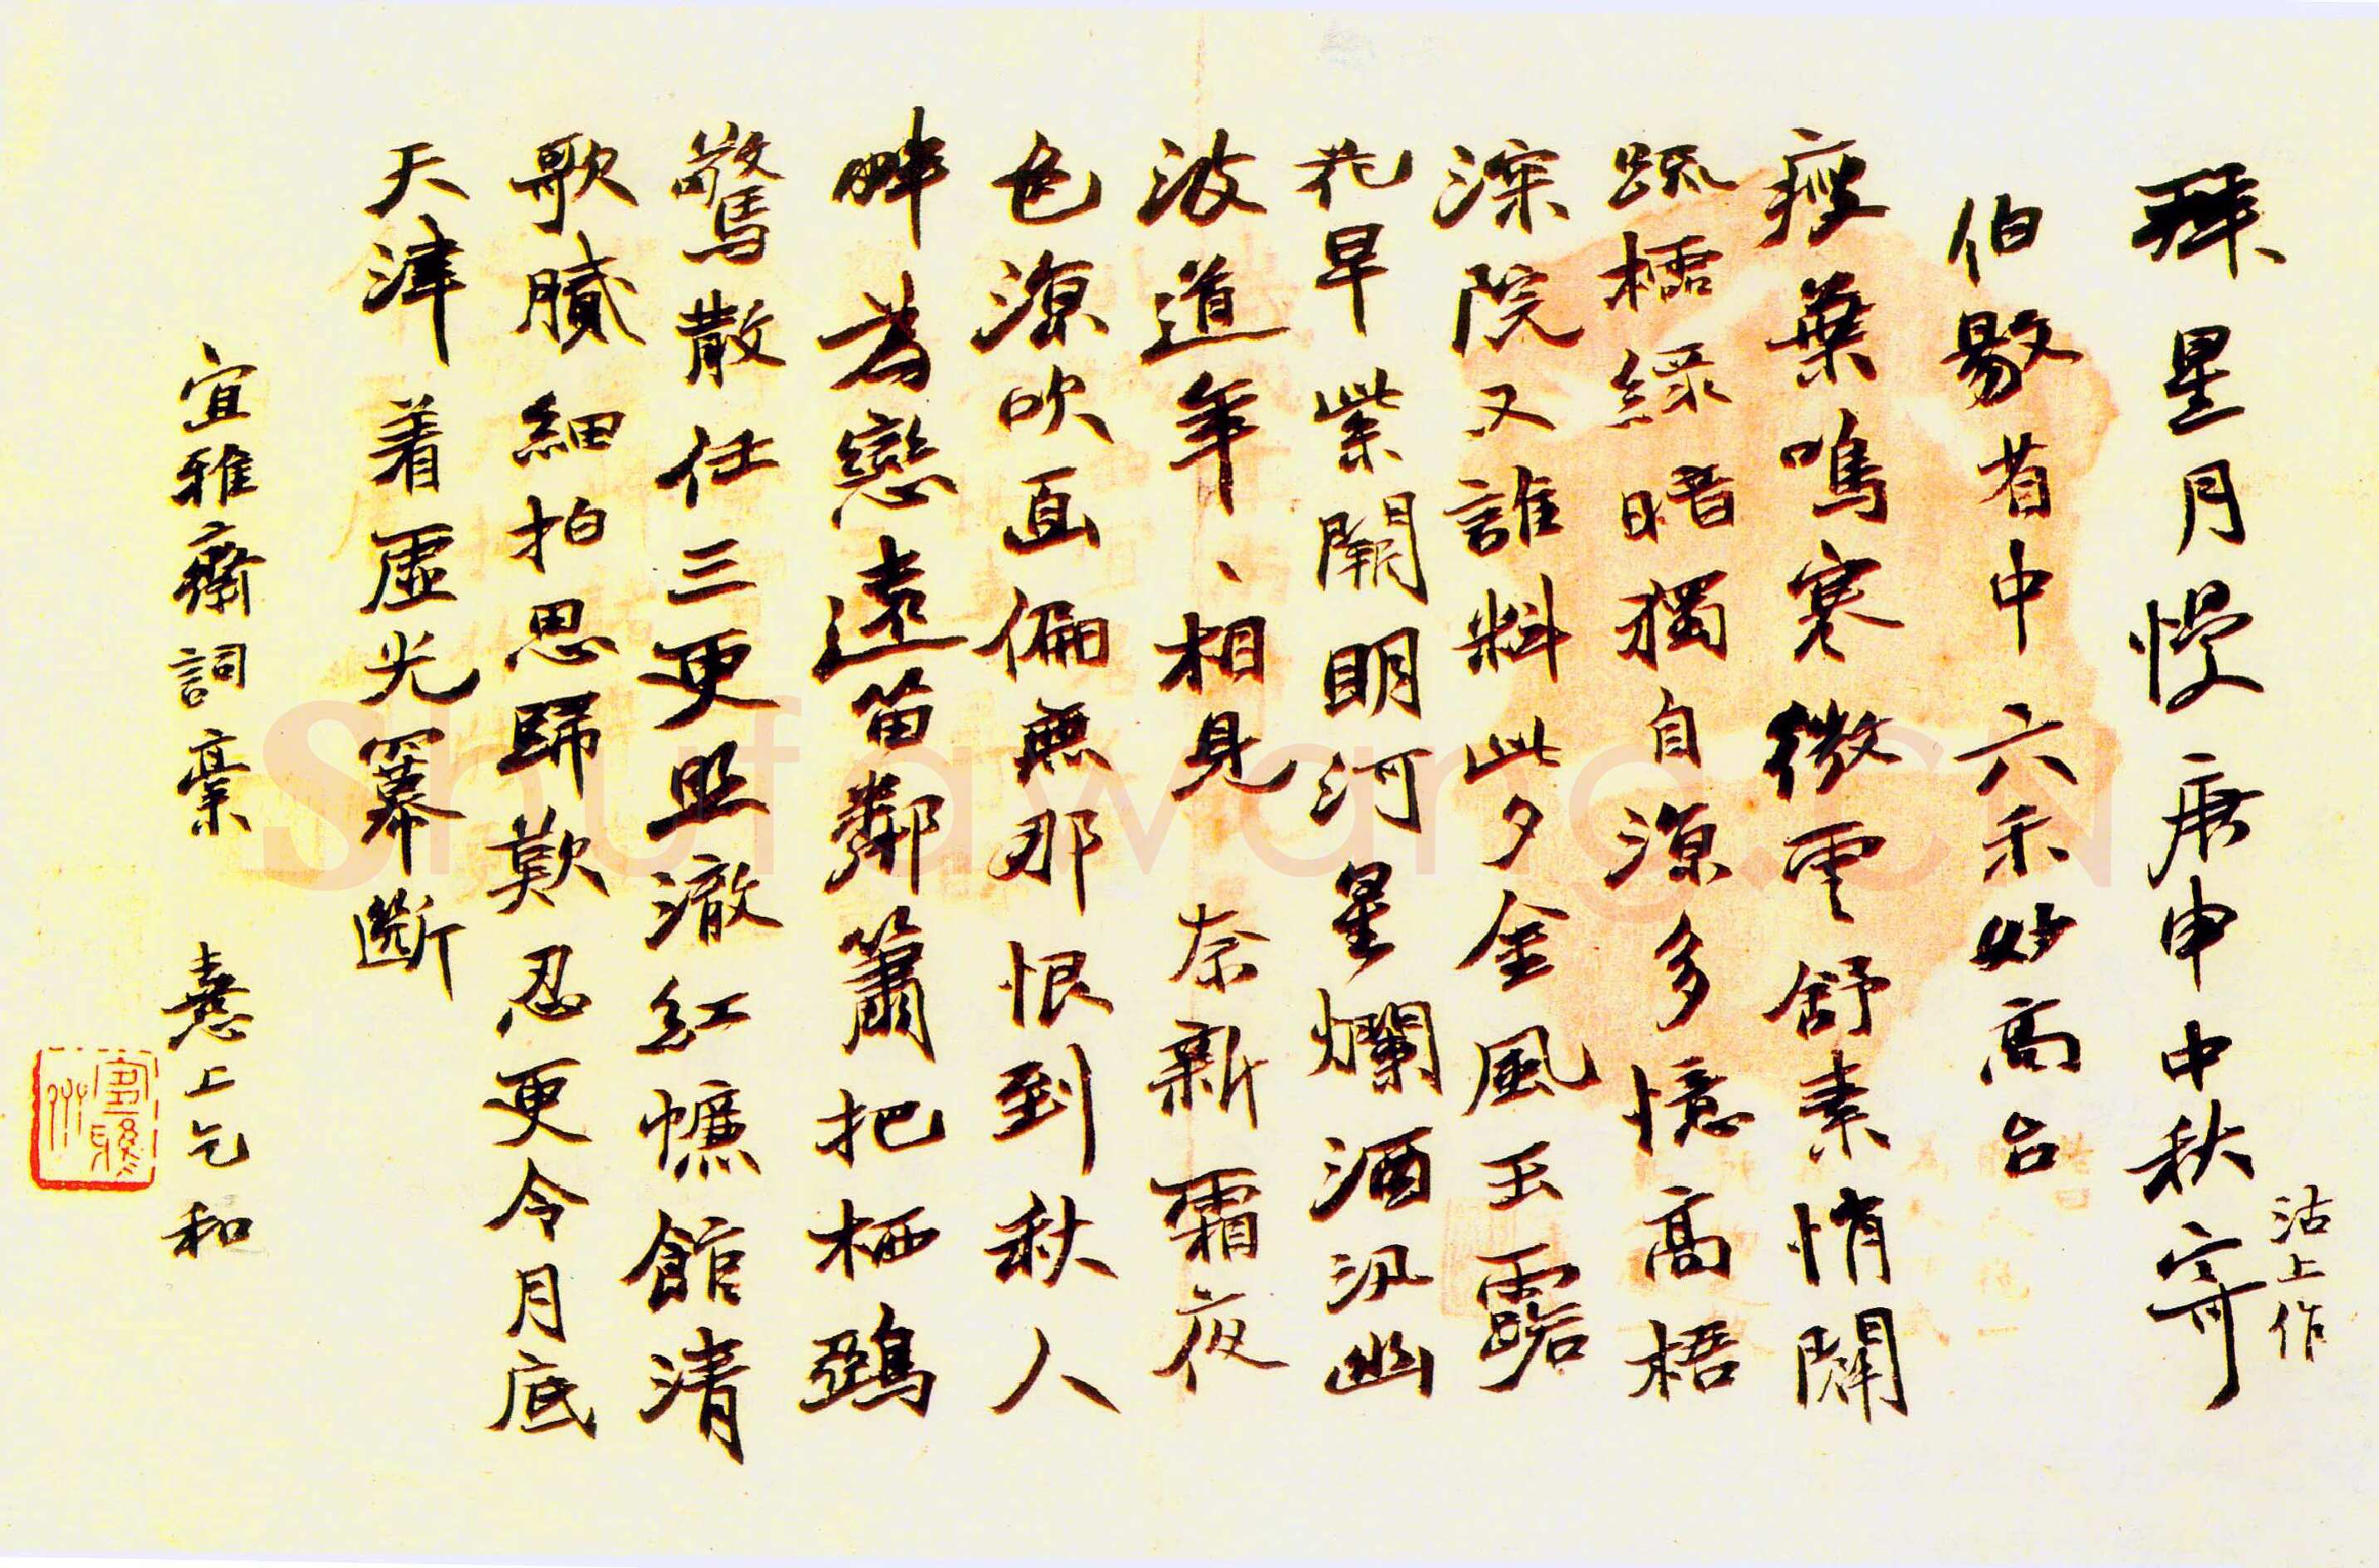 拜星月慢 庚申中秋寄
沽上作
伯敭省中 六禾妙高台
瘦葉鳴寒微雲舒素悄闌
疏櫺緑暗獨自凉多憶高梧
深院又誰料此夕金風玉露
花早紫闌明河星爛酒汎幽
波道年、相見 奈新霜夜
色凉吹直偏無那恨到秋人
畔為戀遠笛鄰簫把栖鵶
驚散任三更照澈紅㡘館清
歌膩細拍思歸歎忍更令月底
天津着虛光冪斷
宜雅齋詞稾 憙上乞和
Shufawang.CN